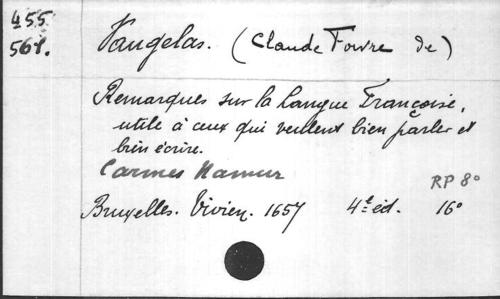 455 Vaugelas. (Claude Favre de)
561.
Remarques sur la langue Françoise,
utile à ceux qui veulent bien parler et
bien écrire.
Carmes Namur
RP 8°
Bruxelles. Vivien. 1657 4e éd. 16°